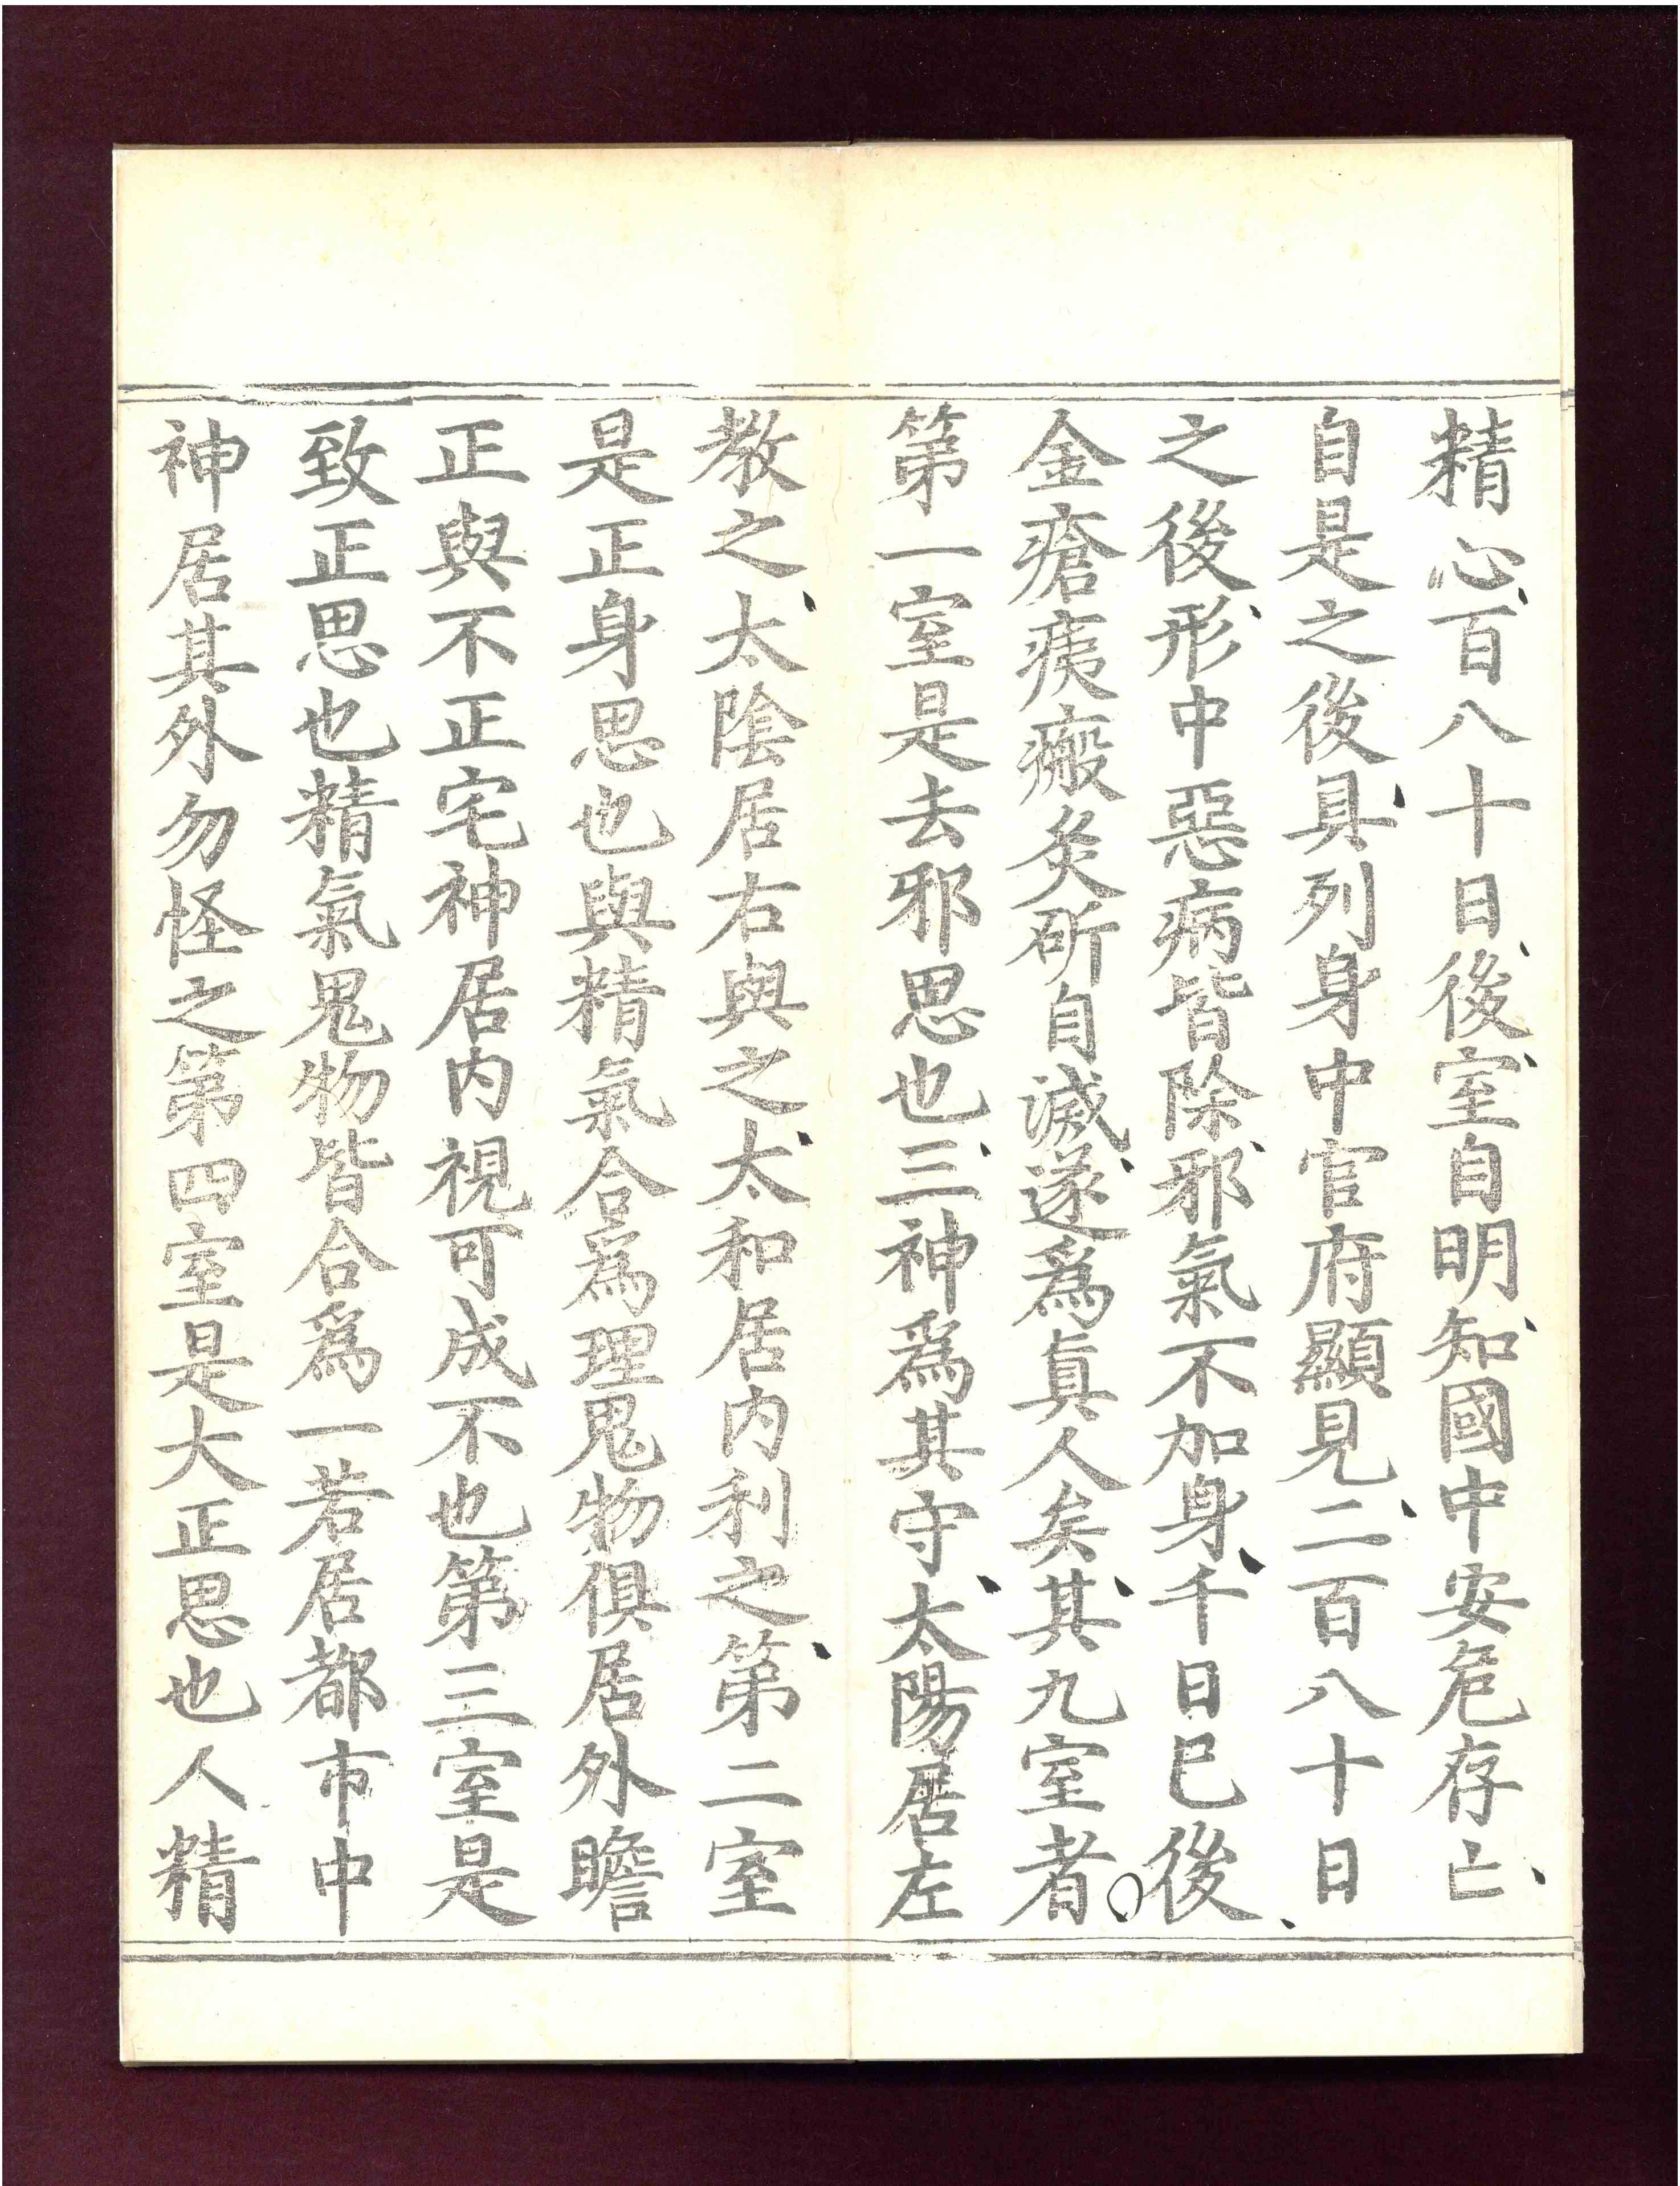 精心百八十日後室自明知國中安危存亡
自是之後具列身中官府顯見二百八十日
之後形中惡病皆除邪氣不加身千日巳後
金瘡痍瘢灸斫自滅遂爲真人矣其九室者
第一室是去邪思也三神爲其守太陽居左
教之太陰居右與之太和居内利之第二室
是正身思也與精氣合爲理鬼物俱居外瞻
正與不正宅神居内視可成不也第三室是
致正思也精氣鬼物皆合爲一若居都市中
神居其外勿怪之第四室是大正思也人精